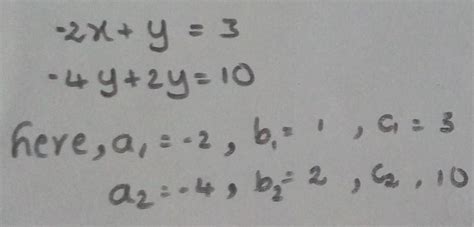 -2x + y = 3
-4y + 2y = 10
here, a₁ = -2, b₁ = 1, c₁ = 3
a₂ = -4, b₂ = 2, c₂, 10